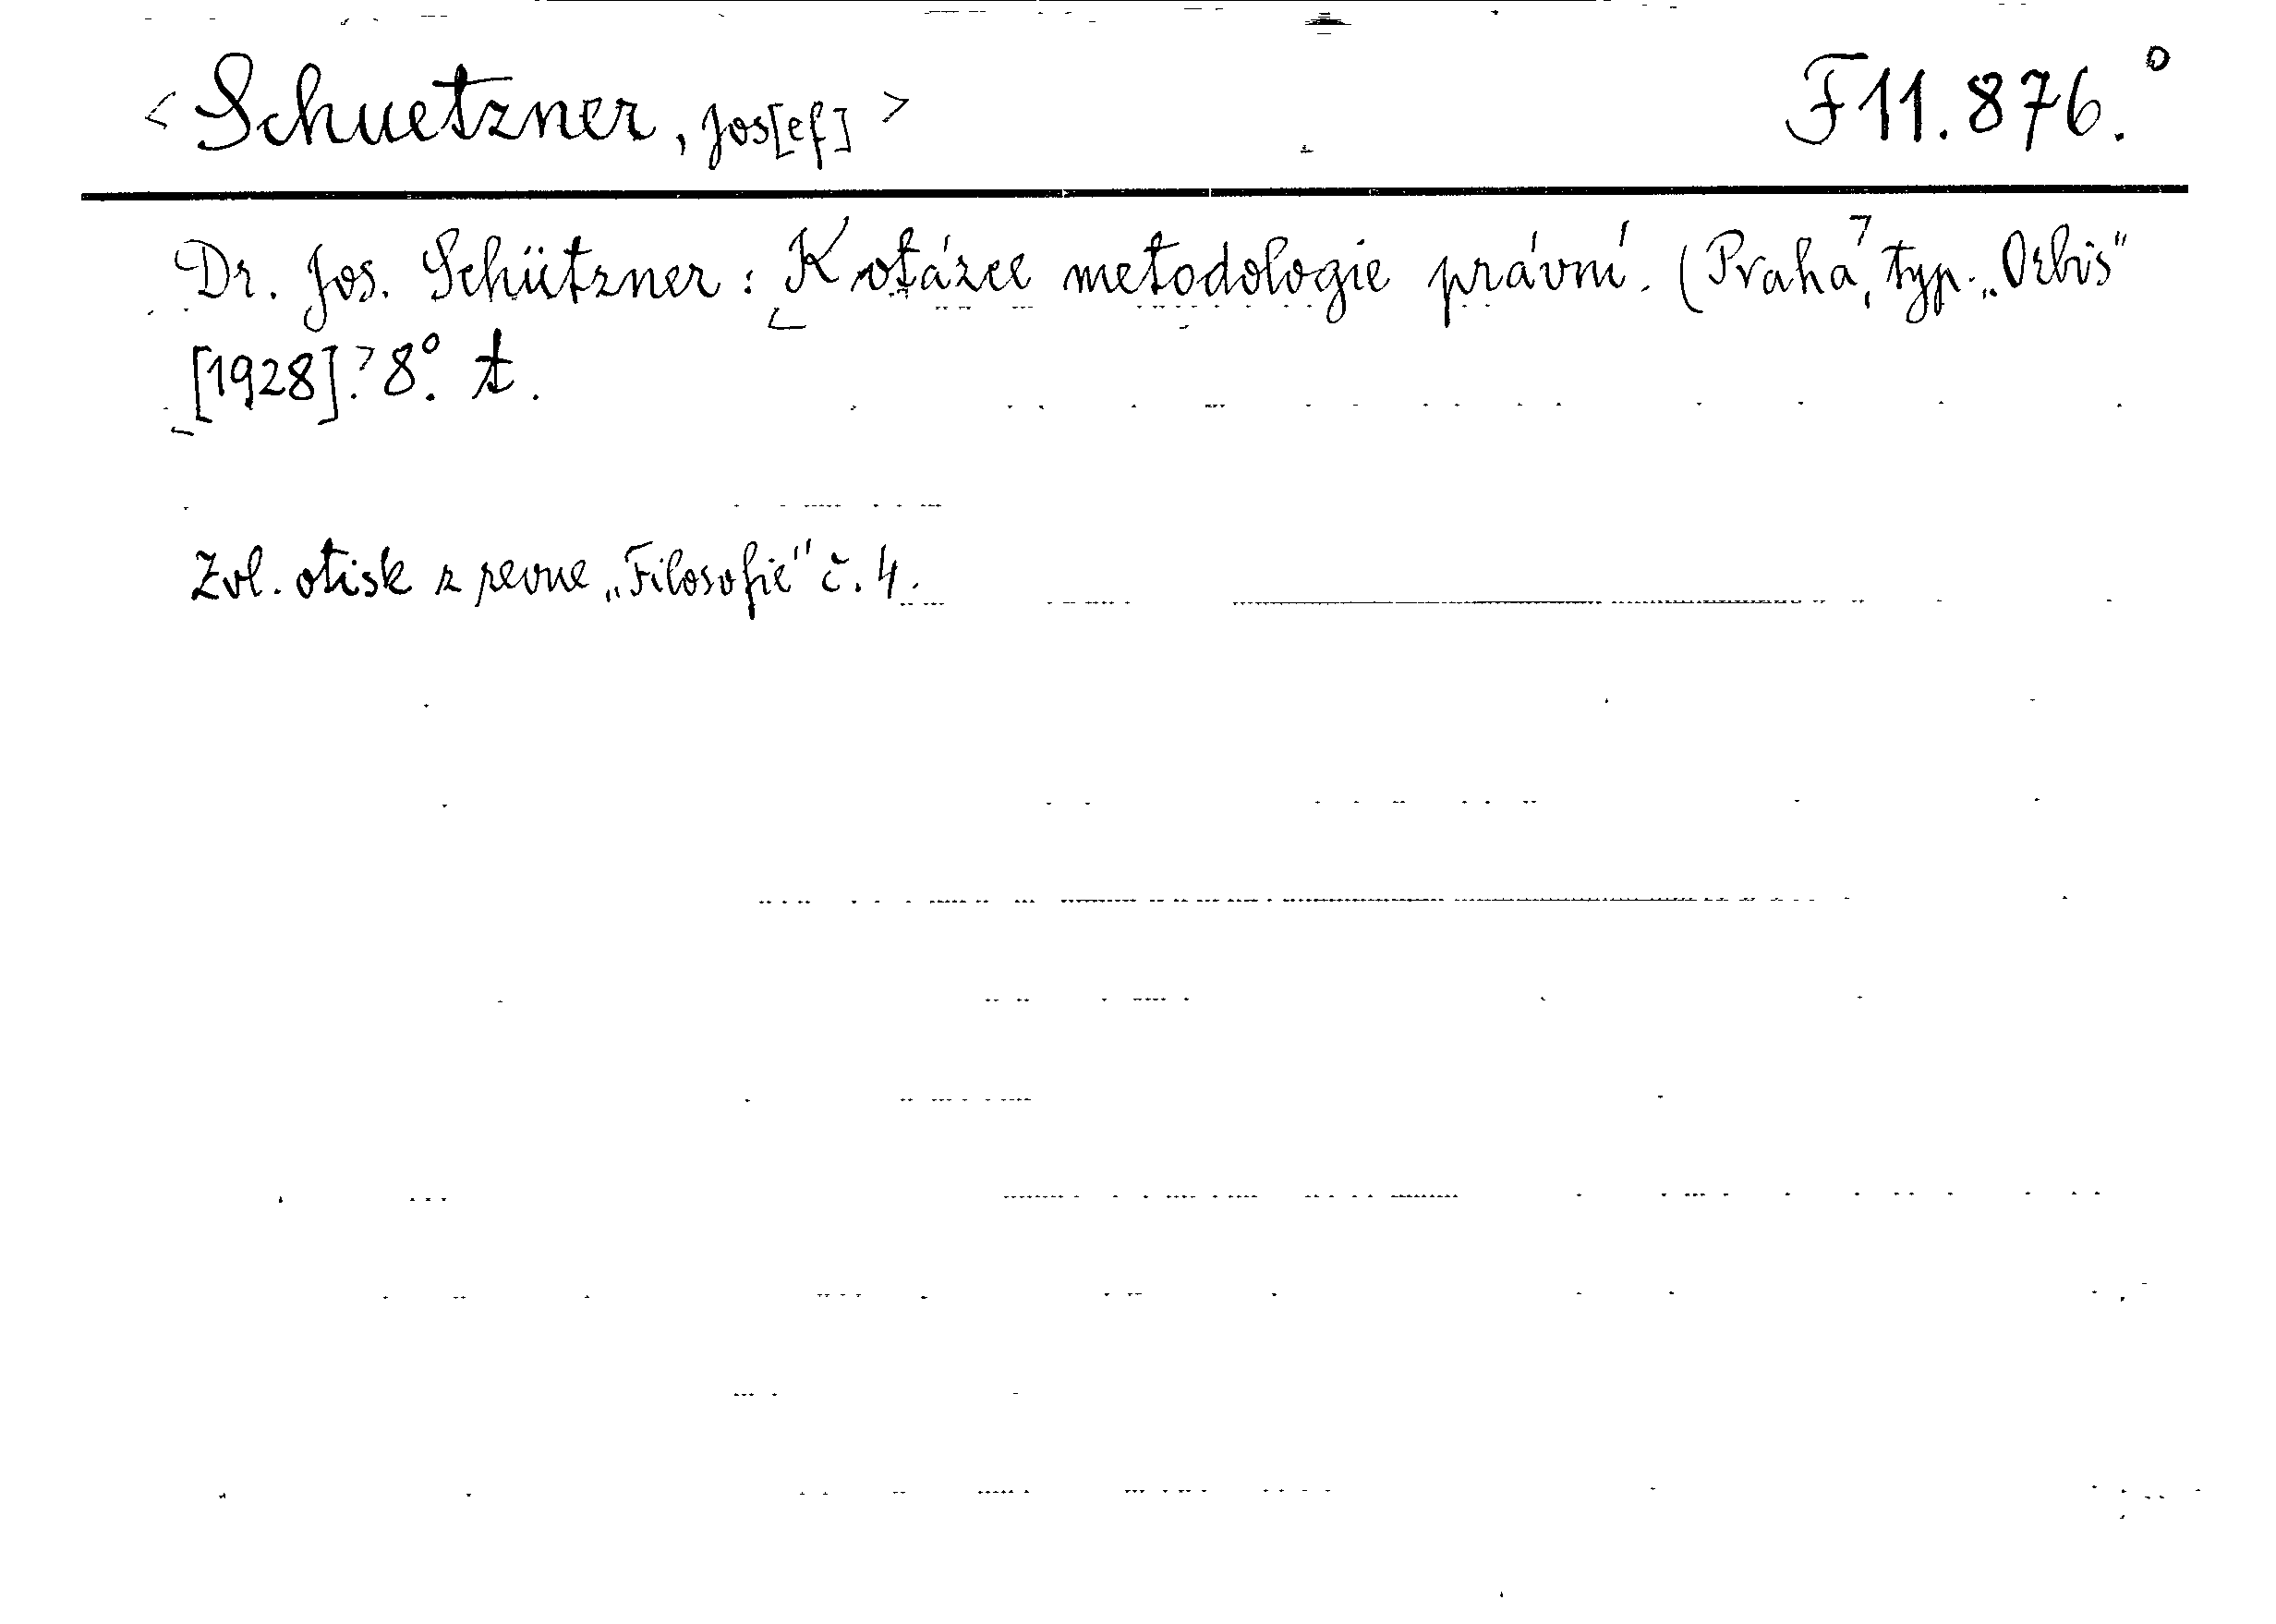 <Schuetzner, Jos[ef]> F 11.876.°
Dr. Jos. Schützner: K otázce metodologie právní. (Praha, typ. „Orbis"
[1928]. 8°. t.
Zvl. otisk z revue „Filosofie" č. 4.